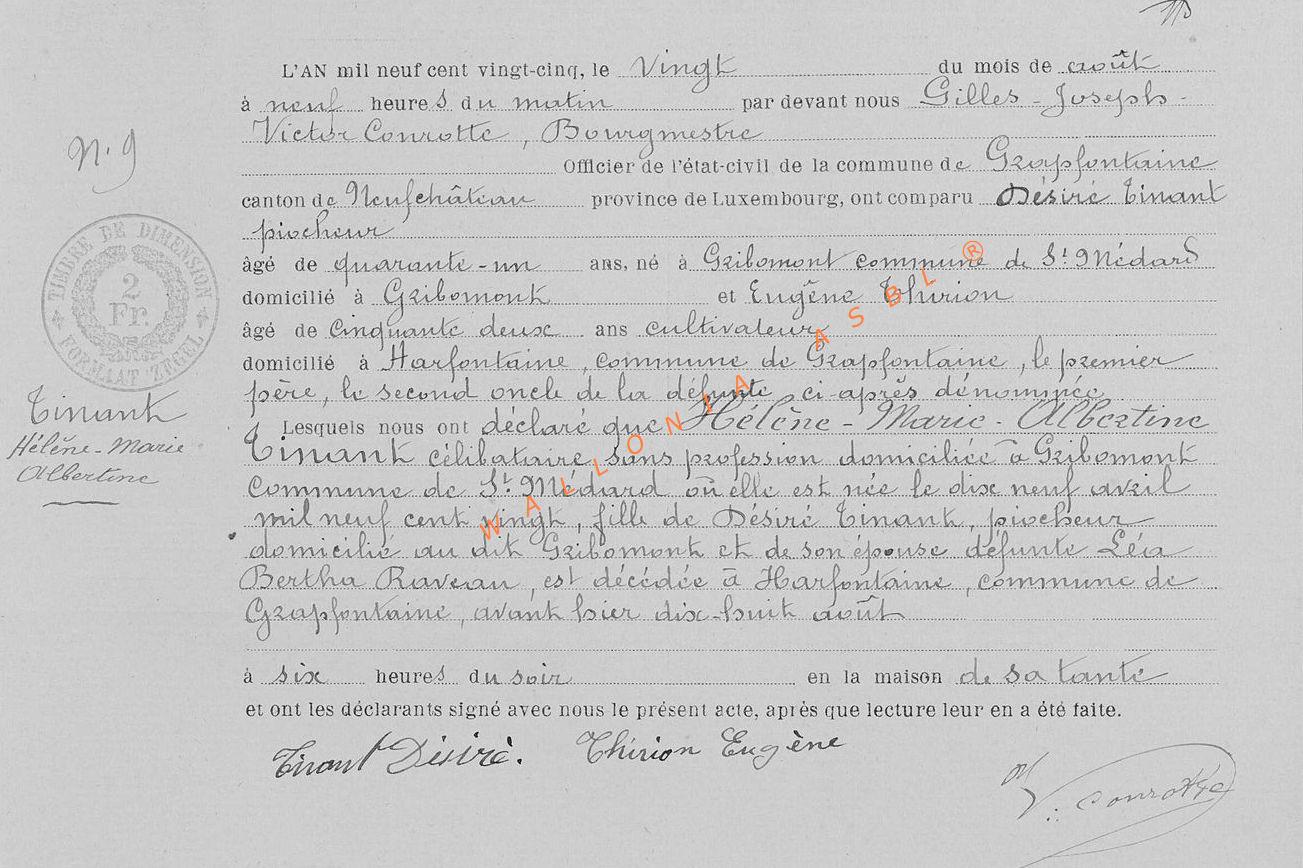 L'AN mil neuf cent vingt-cinq, le vingt du mois de août
à neuf heures du matin par devant nous Gilles-Joseph-
Victor Conrotte, Bourgmestre
Officier de l'état-civil de la commune de Grapfontaine
canton de Neufchâteau province de Luxembourg, ont comparu Désiré Tinant
piocheur
âgé de quarante-un ans, né à Gribomont commune de St Médard
domicilié à Gribomont et Eugène Thirion
âgé de Cinquante deux ans cultivateur
domicilié à Harfontaine, commune de Grapfontaine, le premier
père, le second oncle de la défunte ci-après dénommée
Lesquels nous ont déclaré que Hélène-Marie-Albertine
Tinant célibataire sans profession domiciliée à Gribomont
Commune de St. Médard où elle est née le dix neuf avril
mil neuf cent vingt, fille de Désiré Tinant, piocheur
domicilié au dit Gribomont et de son épouse défunte Léa
Bertha Raveau, est décédée à Harfontaine, commune de
Grapfontaine, avant hier dix-huit août
à six heures du soir en la maison de sa tante
et ont les déclarants signé avec nous le présent acte, après que lecture leur en a été faite.
Tinant Désiré. Thirion Eugène
V. Conrotte
N. 9
TIMBRE DE DIMENSION
2
Fr.
FORMAAT ZEGEL
Tinant
Hélène-Marie
Albertine
WALLONIA ASBL ®